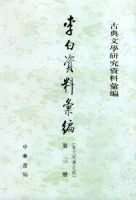 古典文學研究資料彙編
李白資料彙編
(金元明清之部)
第二册
中華書局